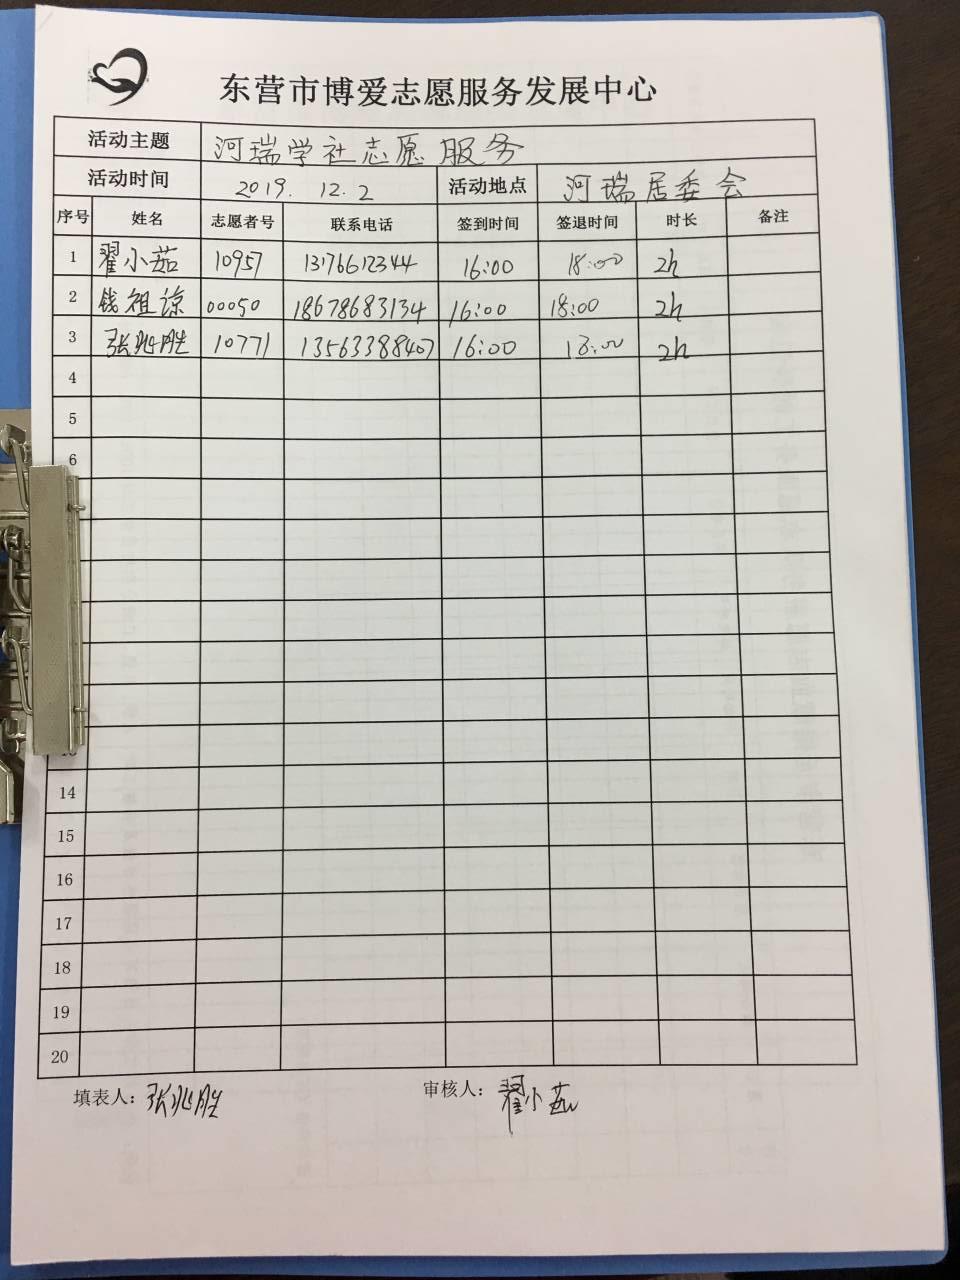 东营市博爱志愿服务发展中心
活动主题 河瑞学社志愿服务
活动时间 2019. 12. 2 活动地点 河瑞居委会
序号 姓名 志愿者号 联系电话 签到时间 签退时间 时长 备注
1 翟小茹 10957 13176612344 16:00 18:00 2h
2 钱祖谅 00050 18678683134 16:00 18:00 2h
3 张兆胜 10771 13563388407 16:00 18:00 2h
4
5
6
14
15
16
17
18
19
20
填表人：张兆胜 审核人：翟小茹